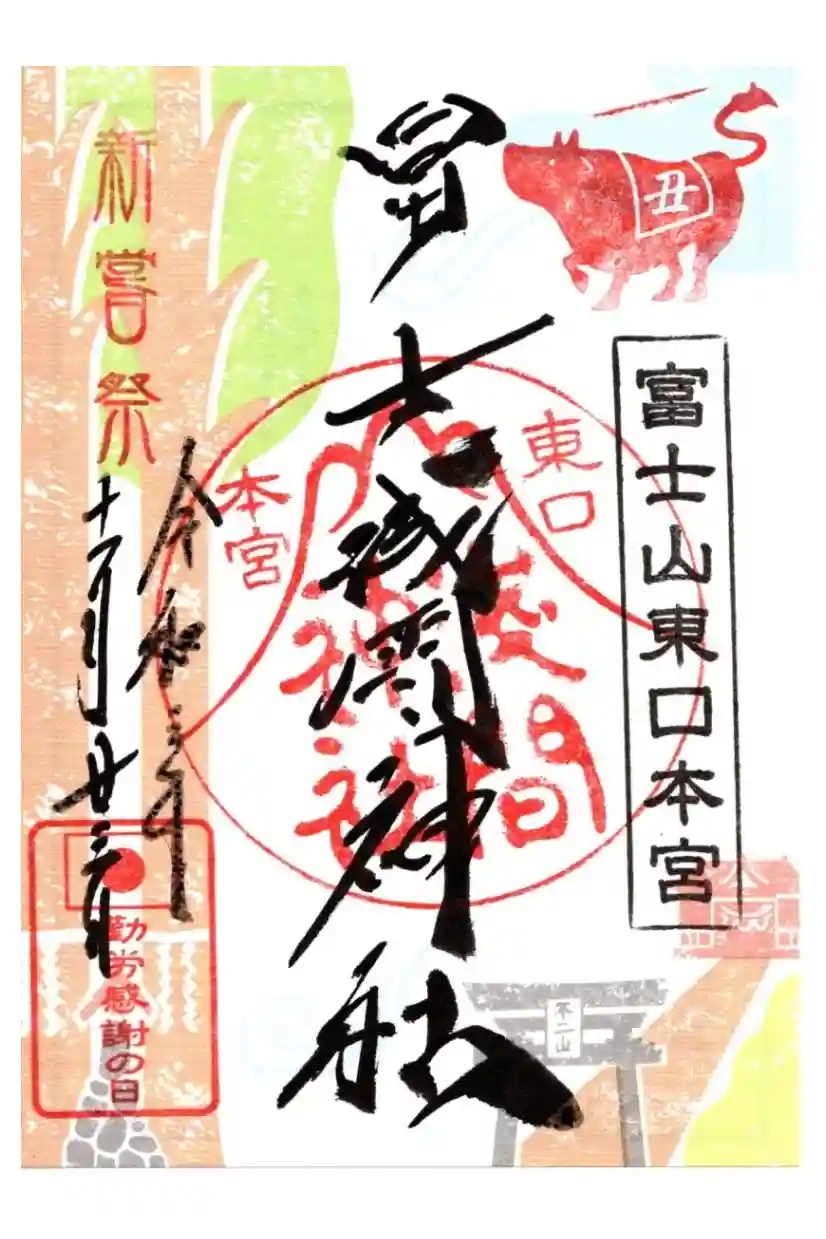 丑
富士山東口本宮
東口
本宮
浅間
神社
冨士浅間神社
新嘗祭
令和三年
十一月廿三日
勤労感謝の日
不二山